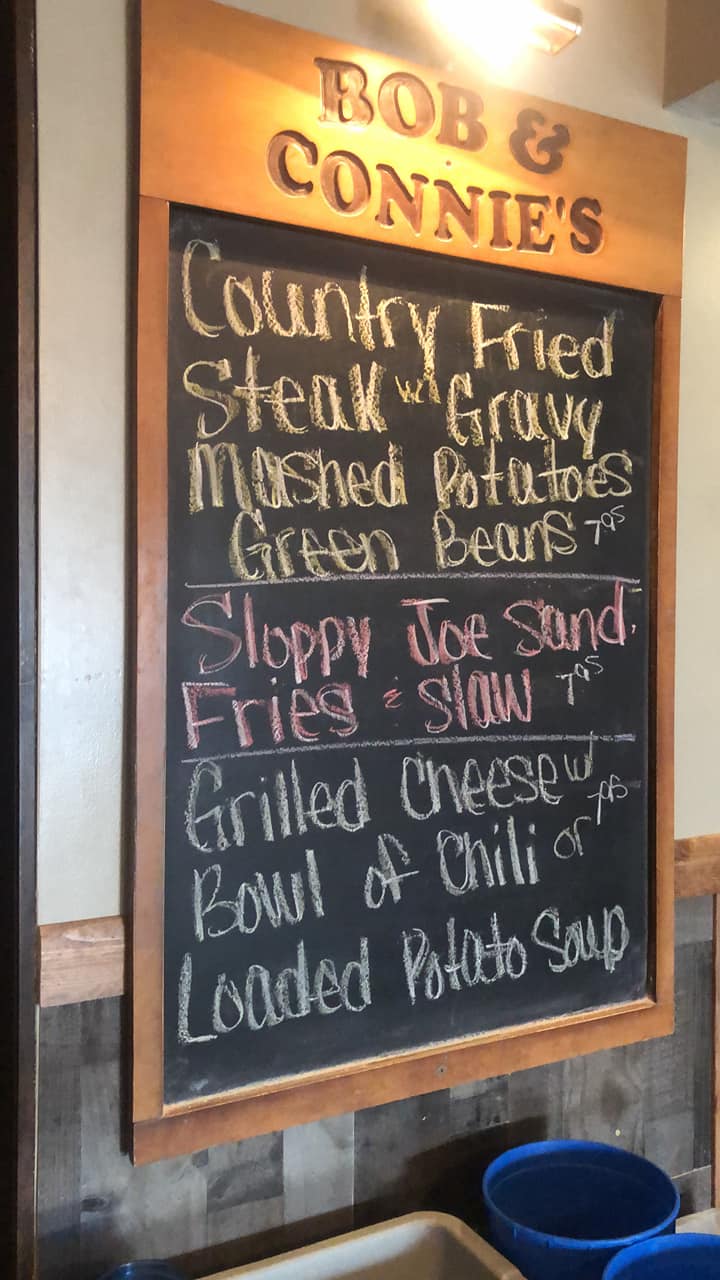 BOB &
CONNIE'S
Country Fried
Steak w/ Gravy
Mashed Potatoes
Green Beans 7.95
Sloppy Joe Sand.
Fries & Slaw 7.95
Grilled Cheese w/
Bowl of Chili or 7.95
Loaded Potato Soup